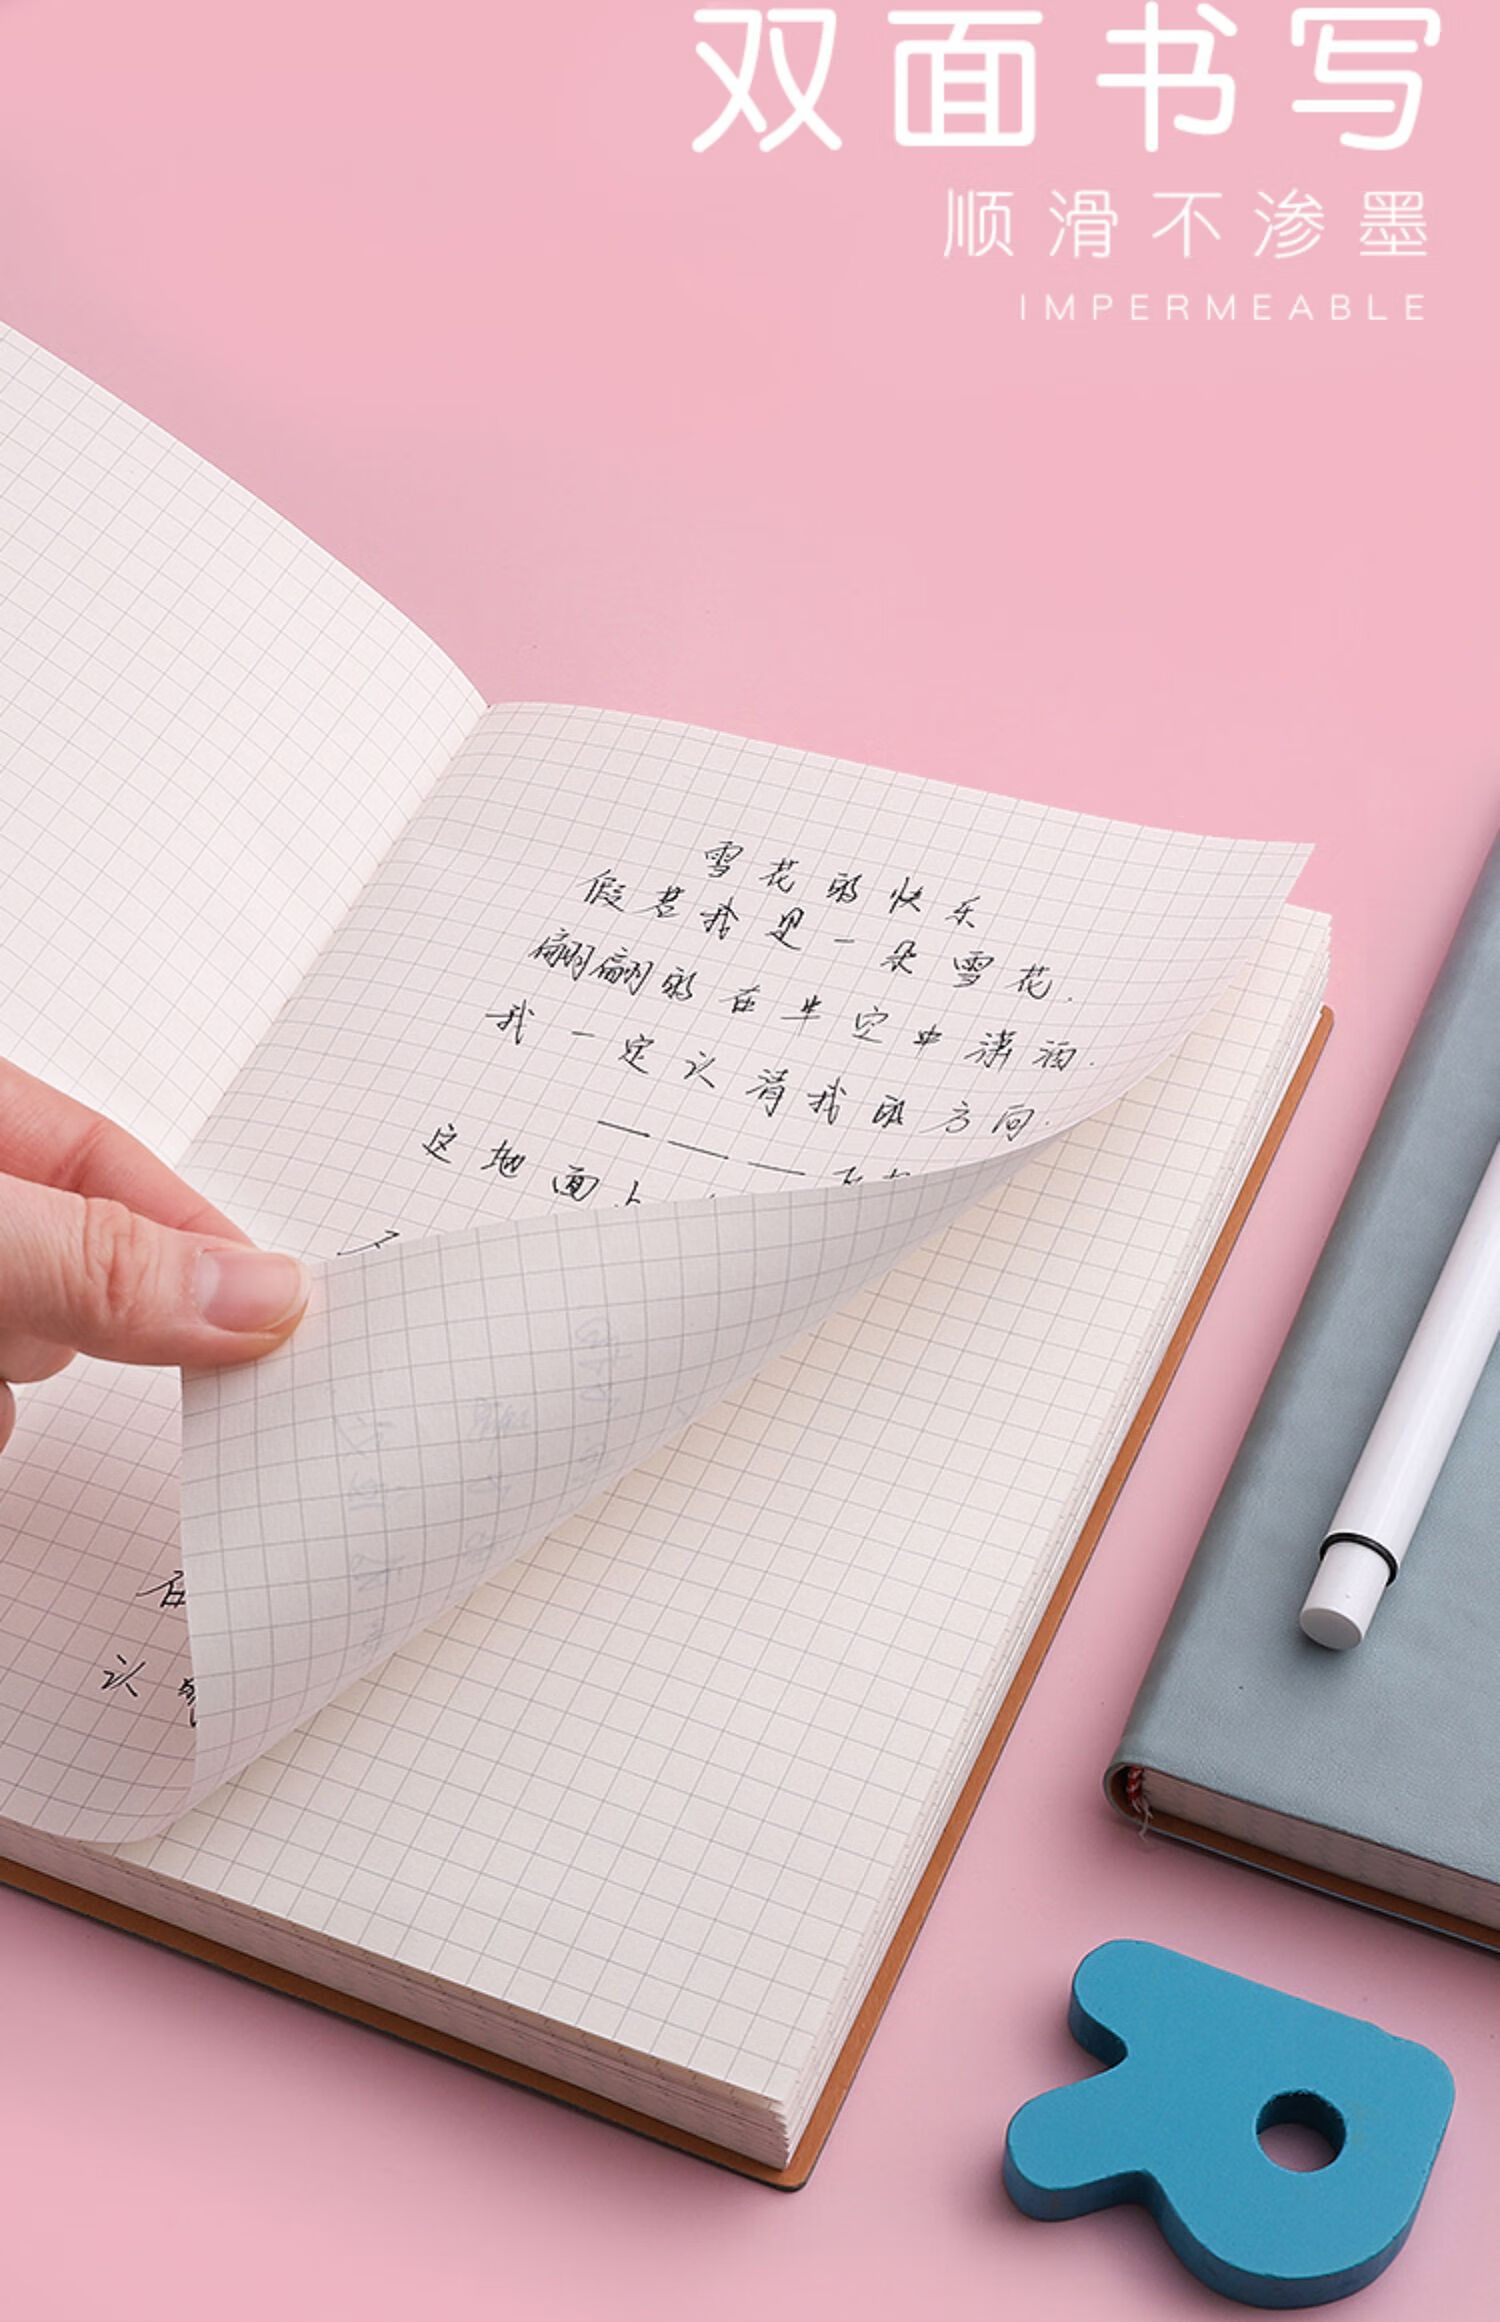 双面书写
顺滑不渗墨
IMPERMEABLE
雪花的快乐
假若我是一朵雪花.
翩翩的在半空中潇洒.
我一定认清我的方向.
———
这地面上
在
认